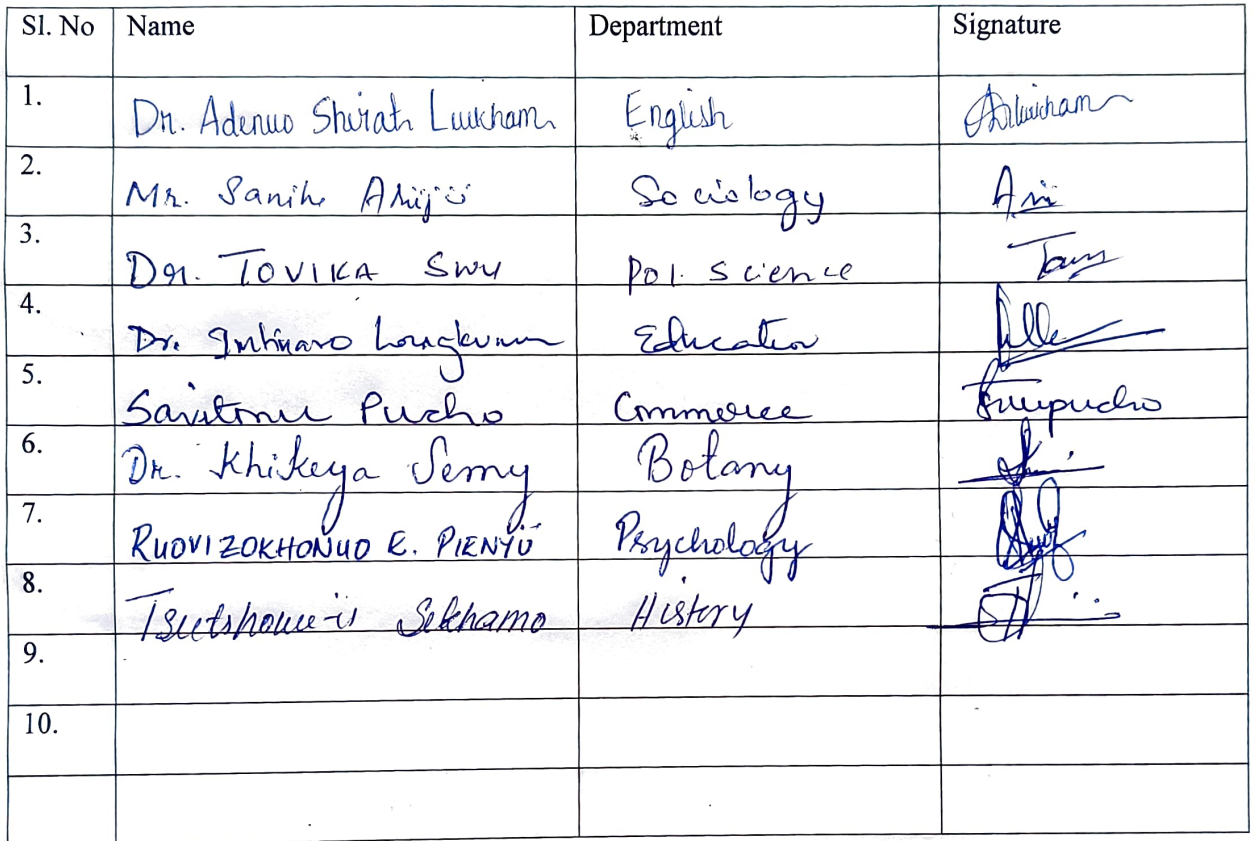 Sl. No Name Department Signature
1. Dr. Adenuo Shirath Luikham English
2. Mr. Sanihe Sociology
3. Dr. TOVIKA SWU Pol. Science
4. Dr. Imtinaro Longkumer Education
5. Pucho Commerce
6. Dr. Khikeya Semy Botany
7. RUOVIZOKHONUO E. PIENYÜ Psychology
8. Sekhamo History
9.
10.